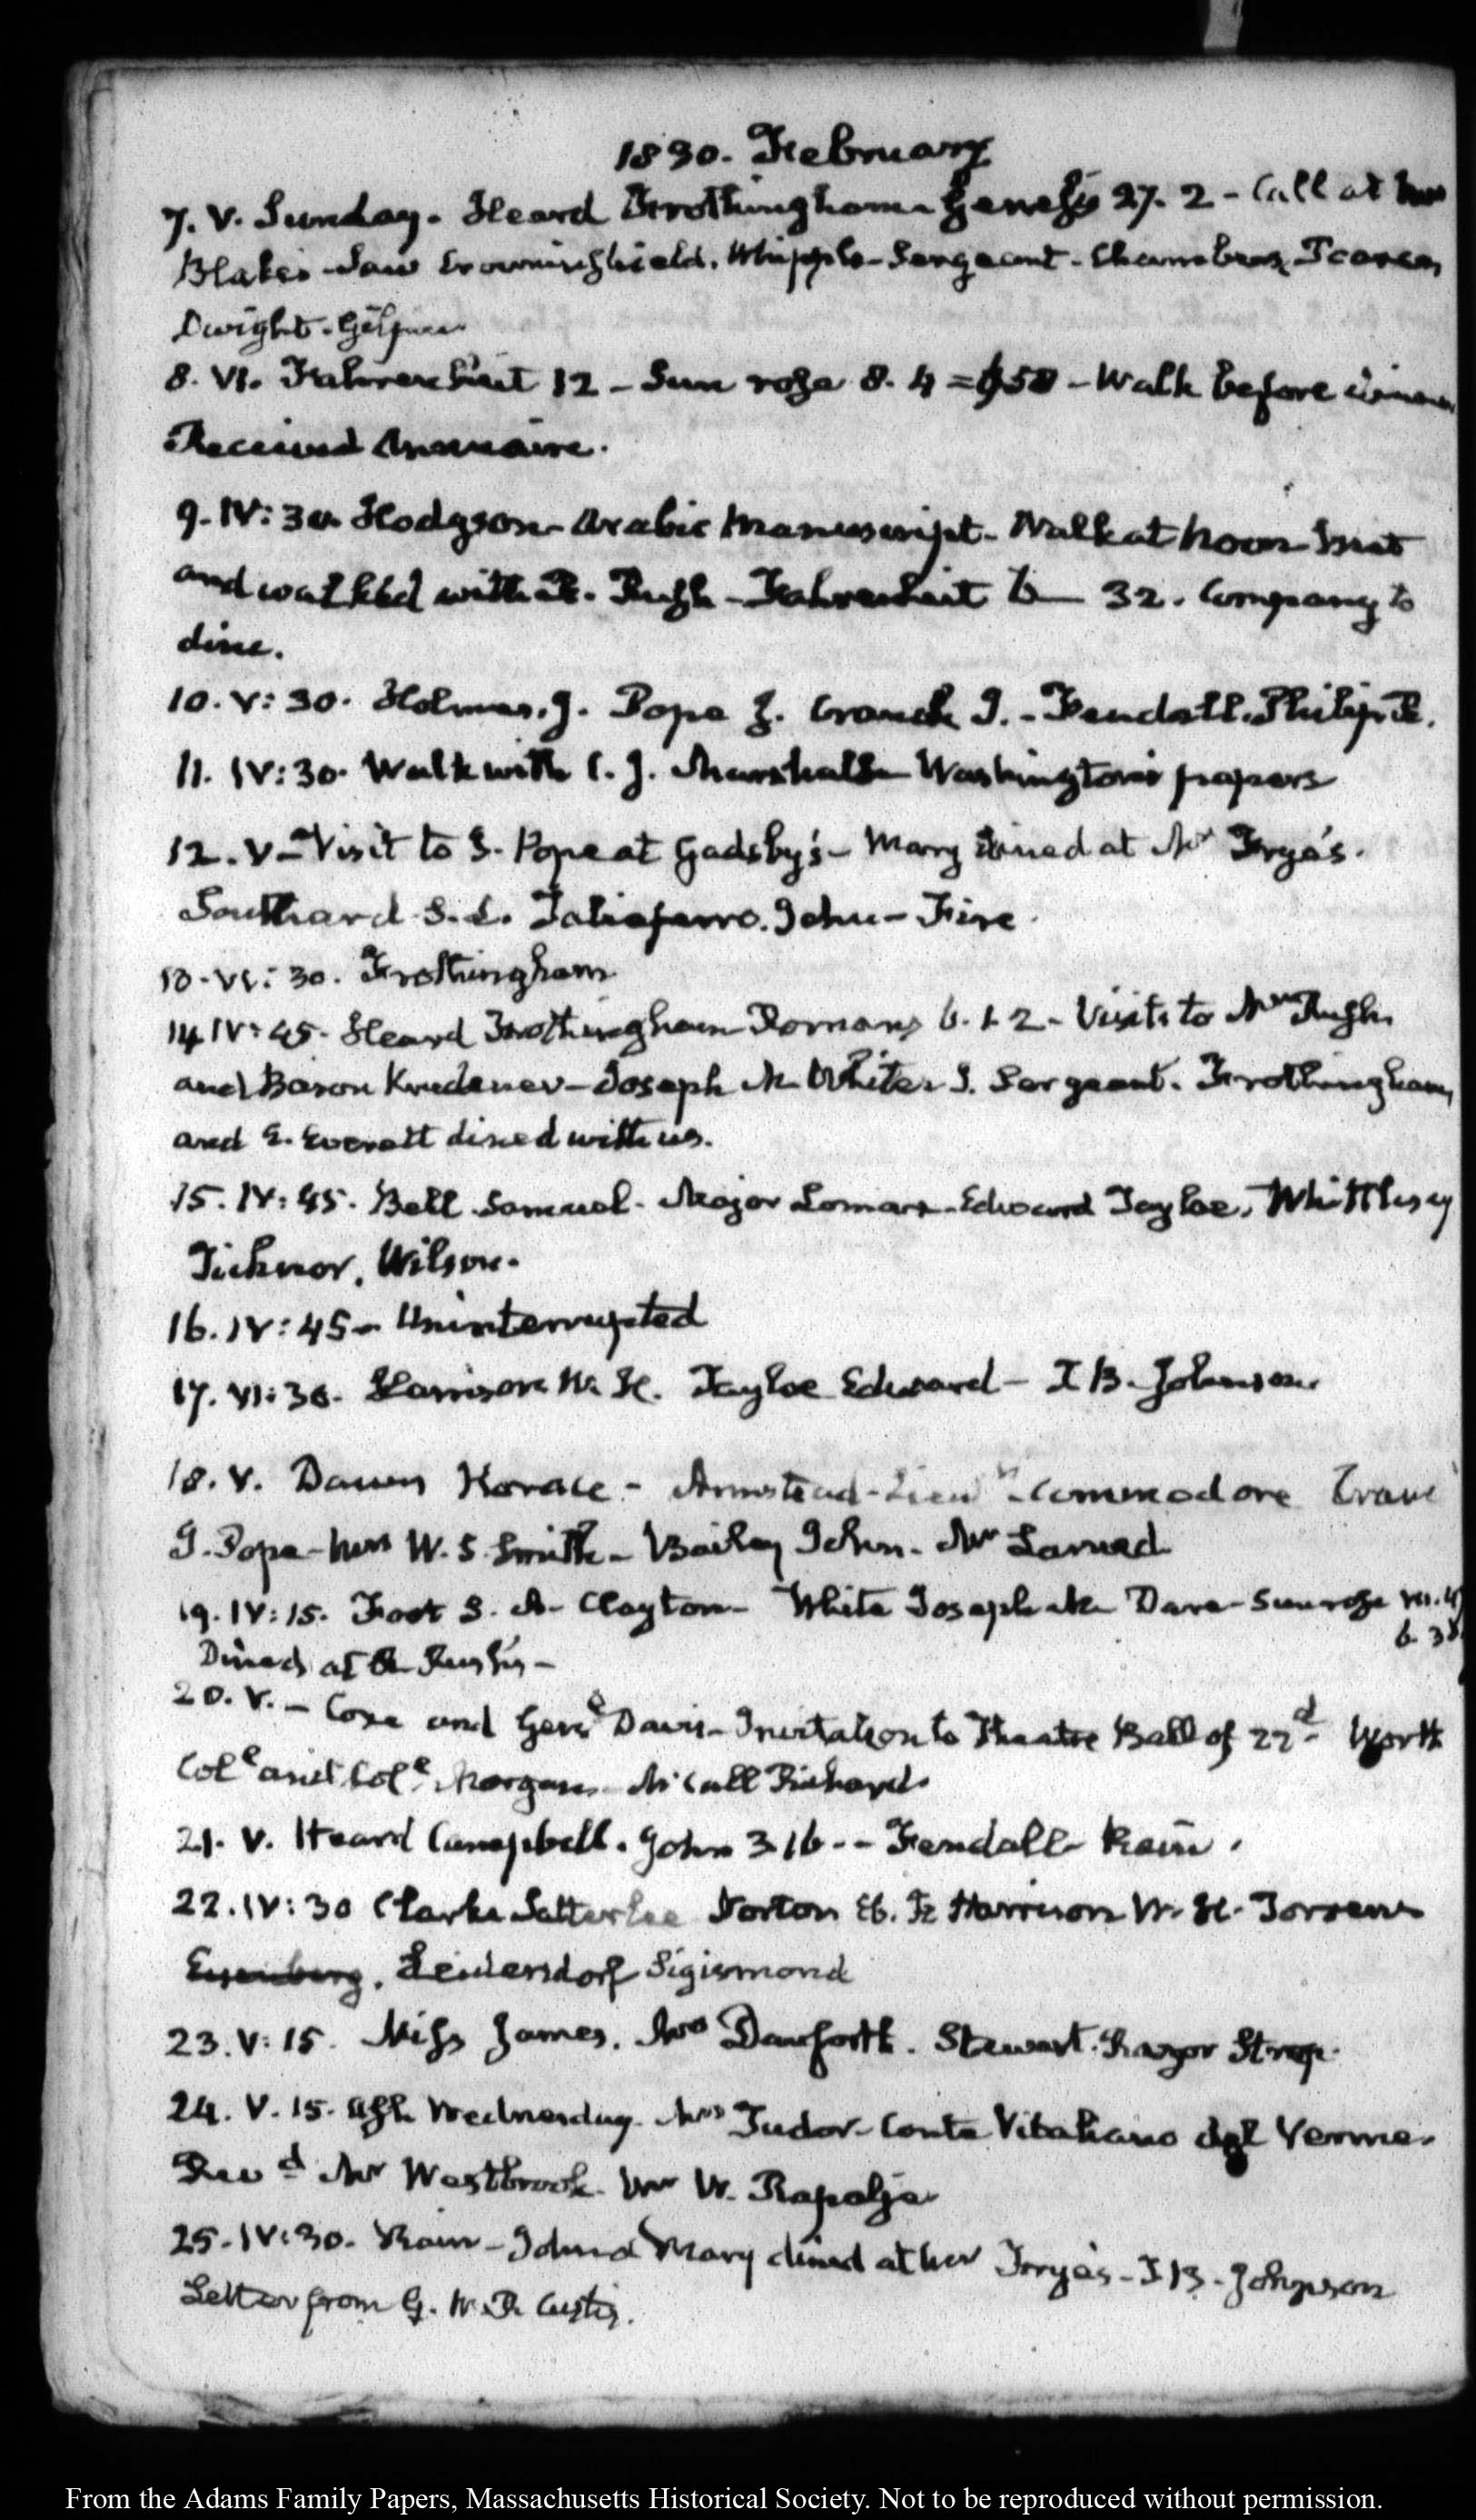 1830. February
7. V. Sunday. Heard Frothingham Genesis 27. 2 - Call at
Blake's - Saw Crowninshield. Whipple - Sergeant - Chambers
Dwight. Gilpin
8. VI. Fahrenheit 12 - Sun rose 8. 4 = 658 - Walk before dinner
Received Annuaire.
9. IV: 30. Hodgson - Arabic Manuscript - Walk at noon - met
and walked with R. Rush - Fahrenheit 32. Company to
dine.
10. V: 30. Holmes. J. Pope J. Cranch J. - Fendall. Philip R.
11. IV: 30. Walk with C. J. Marshall - Washington's papers
12. V - Visit to J. Pope at Gadsby's - Mary dined at Mr Frye's.
Southard S. L. Taliaferro. John - Fire.
13. VI: 30. Frothingham
14 IV: 45. Heard Frothingham Romans 6. 1 2 - Visits to Mrs Rush
and Baron Krudener - Joseph M. White J. Sergeant. Frothingham
and E. Everett dined with us.
15. IV: 45. Bell Samuel. Major Lomax - Edward Tayloe, Whittlesey
Ticknor, Wilson.
16. IV: 45 - Uninterrupted
17. VI: 30. Harrison W. H. Tayloe Edward - I B. Johnson
18. V. Dawes Horace - Armstead - Lieut - Commodore
J. Pope - Mrs W. S. Smith - Bailey John - Mr Larned
19. IV: 15. Foot S. A. Clayton - White Joseph M. Dave - Sun rose
6. 38
Dined at R. Rush's -
20. V. - Coxe and Genl Davis - Invitation to Theatre Ball of 22d Worth
Coll and Coll Morgan - McCall Richard.
21. V. Heard Campbell. John 3 16 - - Fendall - Rain.
22. IV: 30 Clarke Satterlee Norton Eb. F. Harrison W. H. Torrens
Eisenberg. Leidersdorf Sigismond
23. V: 15. Miss James. Mrs Danforth. Stewart. Razor Strop.
24. V. 15. Ash Wednesday - Mrs Tudor - Conte Vitaliano dal Verme.
Revd Mr Westbrook. Mr W. Rapalje
25. IV: 30. Rain - John & Mary dined at Mr Frye's - I B. Johnson
Letter from G. W. P. Custis.
From the Adams Family Papers, Massachusetts Historical Society. Not to be reproduced without permission.